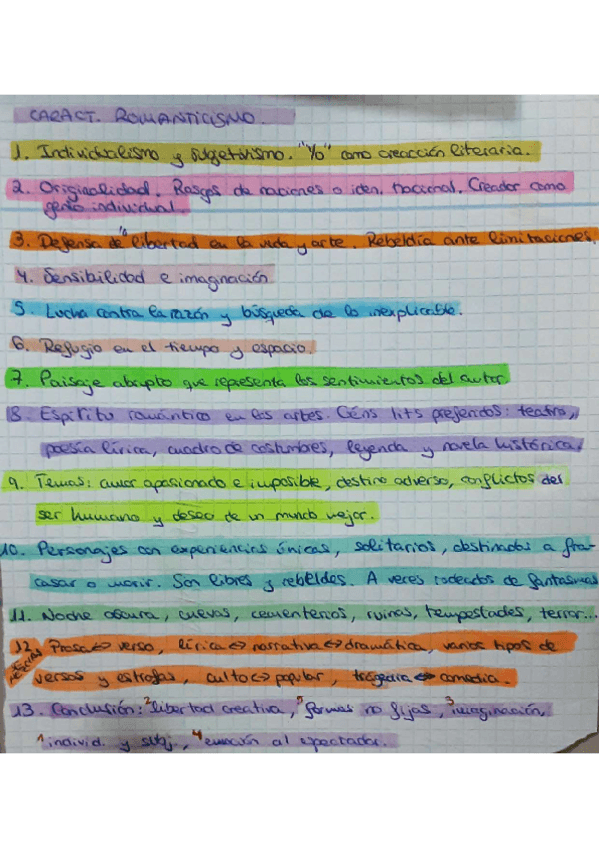 CARACT. ROMANTICISMO.
1. Individualismo y sugetivismo. "Yo" como creacción literaria.
2. Originalidad. Rasgos de naciones o iden. nacional. Creador como
genio individual.
3. Defensa de la libertad en la vida y arte. Rebeldía ante limitaciones.
4. Sensibilidad e imaginación
5. Lucha contra la razón y búsqueda de lo inexplicable.
6. Refugio en el tiempo y espacio.
7. Paisaje abrupto que representa los sentimientos del autor.
8. Espíritu romántico en las artes. Géns lits prejendos: teatro,
poesía lírica, cuadro de costumbres, leyenda y novela histórica.
9. Temas: amor apasionado e imposible, destino adverso, conflictos del
ser humano y deseo de un mundo mejor.
10. Personajes con experiencias únicas, solitarios, destinados a fra-
casar o morir. Son libres y rebeldes. A veces rodeados de fantasmas
11. Noche oscura, cuevas, cementerios, ruinas, tempestades, terror...
12. Prosa ↔ verso, lírica ↔ narrativa ↔ dramática, varios tipos de
versos y estrofas, culto ↔ popular, tragedia ↔ comedia.
13. Conclusión: ²libertad creativa, ⁵formas no fijas, ³imaginación,
¹individ. y subj., ⁴emoción al espectador.